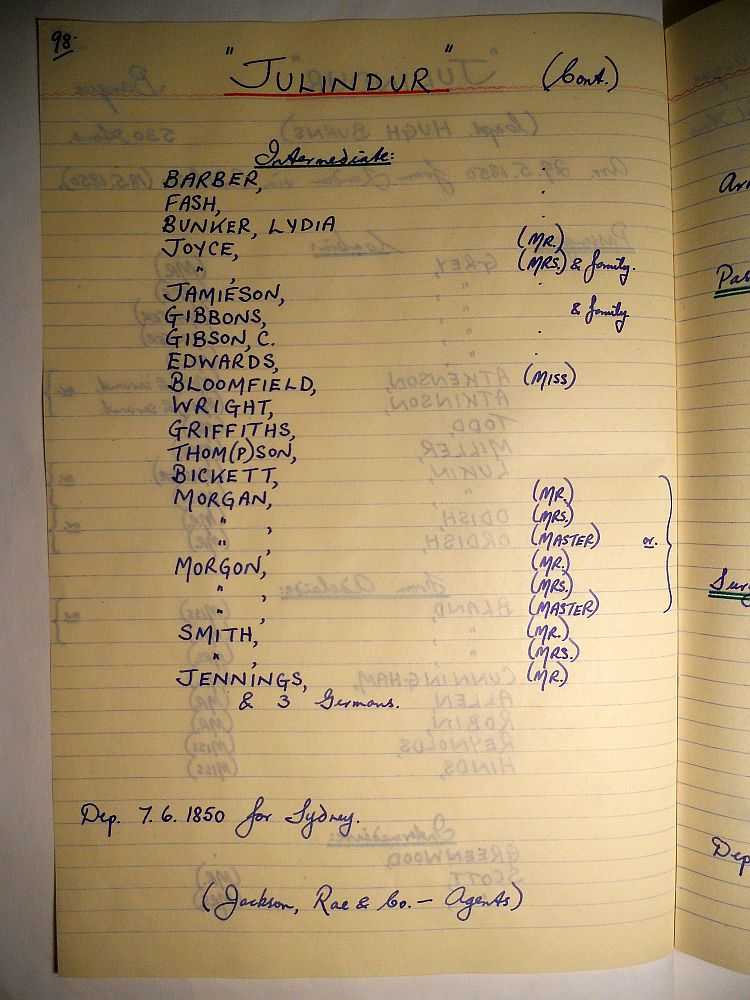 98.
"JULINDUR" (Cont.)
Intermediate:
BARBER,
FASH,
BUNKER, LYDIA
JOYCE, (MR.)
" , (MRS.) & family.
JAMIESON,
GIBBONS, & family.
GIBSON, C.
EDWARDS,
BLOOMFIELD, (MISS)
WRIGHT,
GRIFFITHS,
THOM(P)SON,
BICKETT,
MORGAN, (MR.)
" , (MRS.)
" , (MASTER) or.
MORGON, (MR.)
" , (MRS.)
" , (MASTER)
SMITH, (MR.)
" , (MRS.)
JENNINGS, (MR.)
& 3 Germans.
Dep. 7.6.1850 for Sydney.
(Jackson, Rae & Co. — Agents)